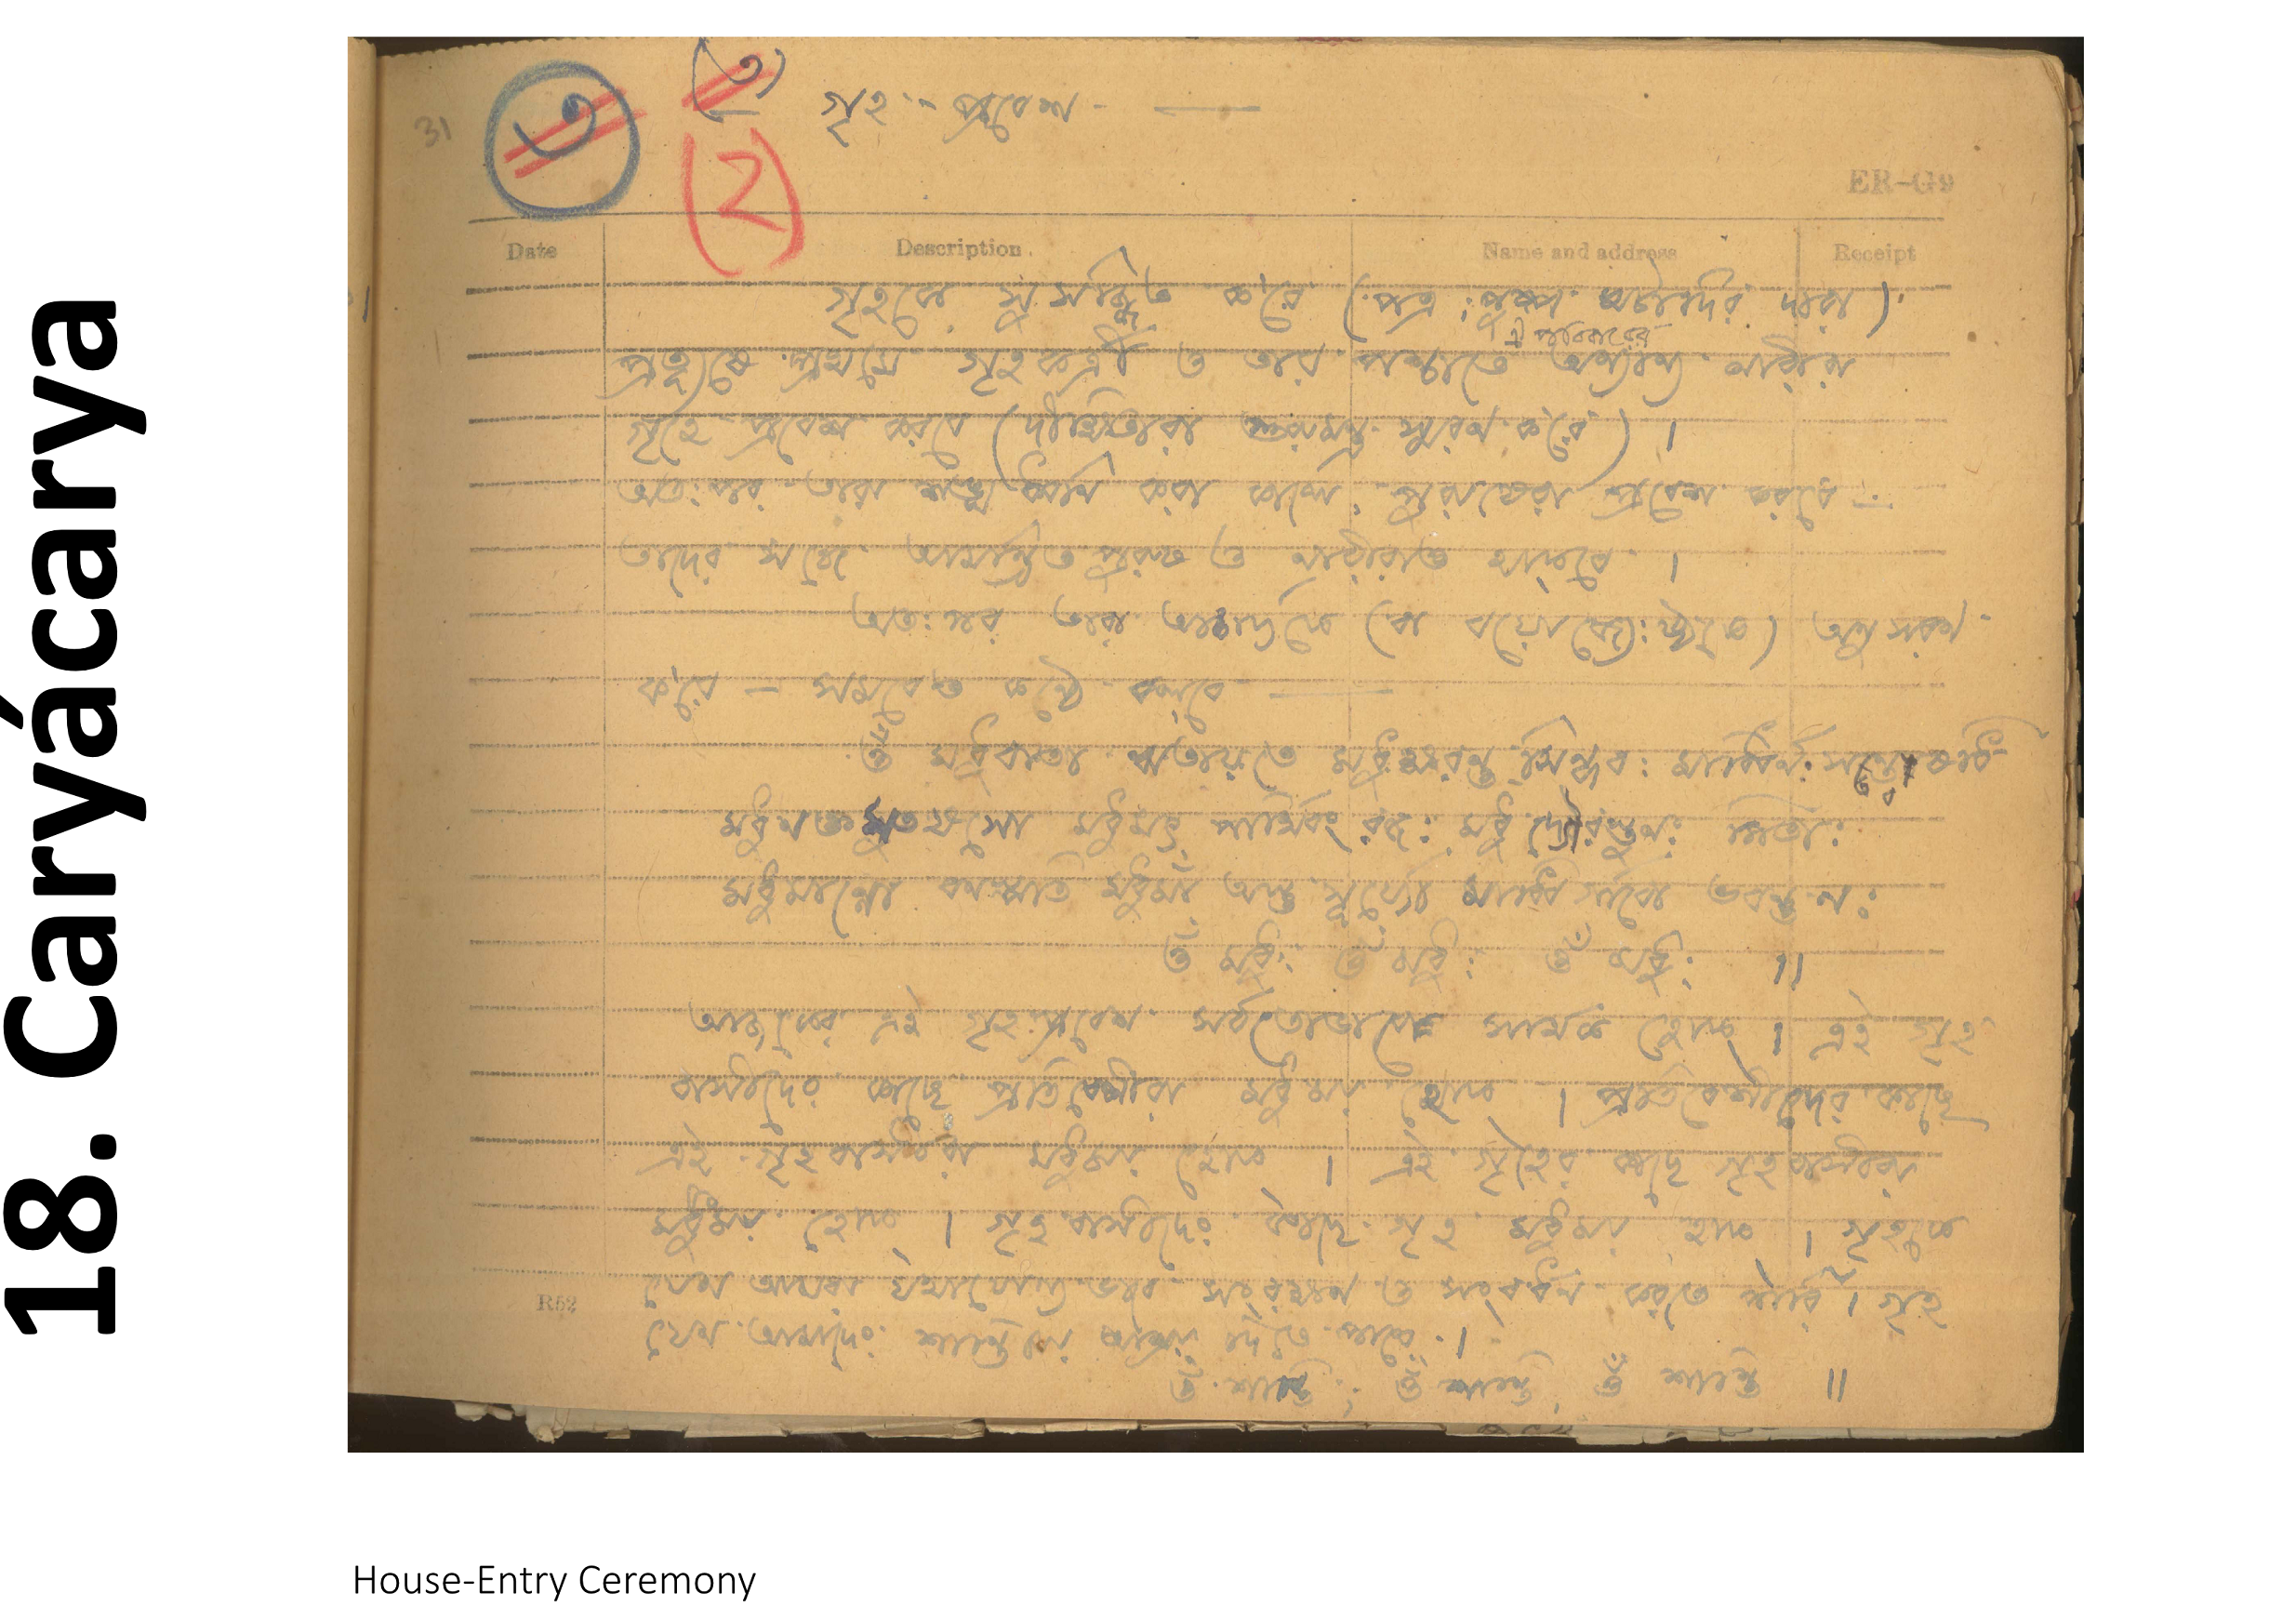 18. Caryácarya
31
৩
(৩)
গৃহ-প্রবেশ
(2)
ER-G9
Date Description Name and address Receipt
গৃহকে সুসজ্জিত ক'রে (পত্র, পুষ্প ঘটাদির দ্বারা)
ঐ পরিবারের
প্রত্যূষে প্রথমে গৃহকর্ত্রী ও তার পশ্চাতে অন্যান্য নারীরা
গৃহে প্রবেশ করবে (দীক্ষিতারা গুরুমন্ত্র স্মরণ ক'রে) ।
অতঃপর তারা শঙ্খধ্বনি করা কালে, পুরুষেরা প্রবেশ করবে —
তাদের সঙ্গে আমন্ত্রিত পুরুষ ও নারীরাও থাকবে ।
অতঃপর তারা আচার্যকে (বা বয়োজ্যেষ্ঠকে) অনুসরণ
ক'রে — সমবেত কণ্ঠে বলবে —
ওঁ মধুবাতা ঋতায়তে মধুক্ষরন্তু সিন্ধবঃ মাধ্বির্নঃ সন্ত্বোষধি
মধুনক্তমুতষসো মধুমৎ পার্থিবং রজঃ মধু দ্যৌরস্তুনঃ পিতাঃ
মধুমান্নো বনস্পতি মধুমাঁ অস্তু সূর্য্যো মাধ্বি র্গাবো ভবন্তু নঃ
ওঁ মধুঃ ওঁ মধুঃ ওঁ মধুঃ ॥
আজকের এই গৃহপ্রবেশ সর্বতোভাবে সার্থক হোক । এই গৃহ
বাসীদের কাছে প্রতিবেশীরা মধুময় হোক । প্রতিবেশীদের কাছে
এই গৃহবাসীরা মধুময় হোক । এই গৃহের কাছে গৃহবাসীরা
মধুময় হোক । গৃহবাসীদের কাছে গৃহ মধুময় হোক । গৃহকে
যেন আমরা যথাযোগ্য ভাবে সংরক্ষণ ও সংবর্ধন করতে পারি । গৃহ
R52
যেন আমাদের শান্তিময় আশ্রয় দিতে পারে ।
ওঁ শান্তি, ওঁ শান্তি, ওঁ শান্তি ॥
House-Entry Ceremony